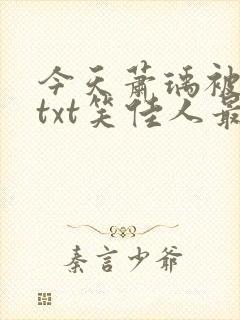 今天萧瑀被
txt笑佳人最
秦言少爷